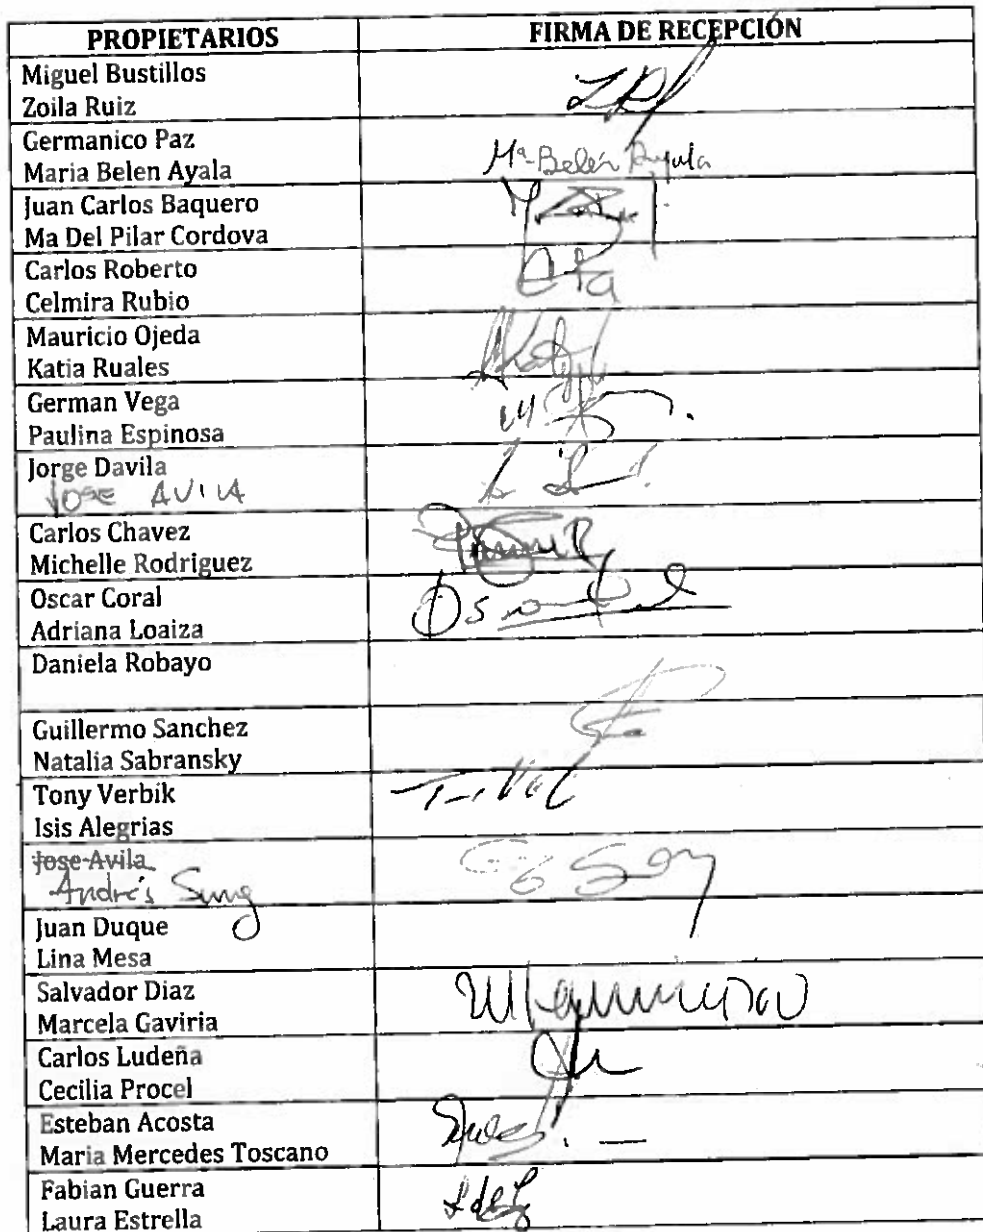 PROPIETARIOS FIRMA DE RECEPCIÓN
Miguel Bustillos
Zoila Ruiz
Germanico Paz
Maria Belen Ayala Mª Belén Ayala
Juan Carlos Baquero
Ma Del Pilar Cordova
Carlos Roberto
Celmira Rubio
Mauricio Ojeda
Katia Ruales
German Vega
Paulina Espinosa
Jorge Davila
JOSE AVILA
Carlos Chavez
Michelle Rodriguez
Oscar Coral
Adriana Loaiza
Daniela Robayo
Guillermo Sanchez
Natalia Sabransky
Tony Verbik
Isis Alegrias
Jose Avila
Andrés Sung
Juan Duque
Lina Mesa
Salvador Diaz
Marcela Gaviria
Carlos Ludeña
Cecilia Procel
Esteban Acosta
Maria Mercedes Toscano
Fabian Guerra
Laura Estrella